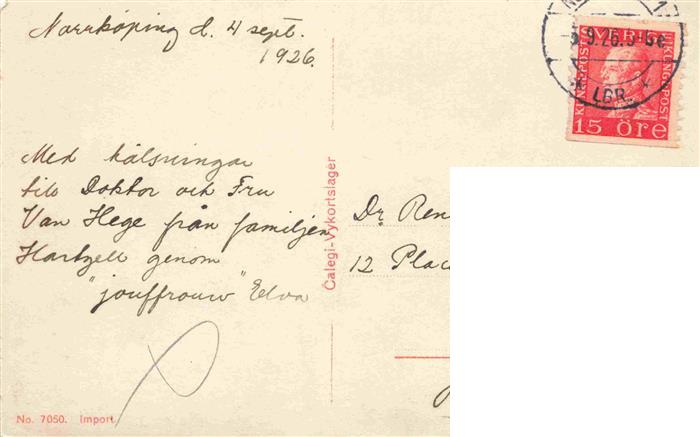 Norrköping d. 4 sept.
1926.
Med hälsningar
till Doktor och Fru
Van Hege från familjen
Hartzell genom
"jouffrouw" Elva
Dr. Ren
12 Plac
Calegi-Vykortslager
No. 7050. Import.
SVERIGE
KUNGL·POST
KUNGL·POST
15 öre
9.26.5
LBR.